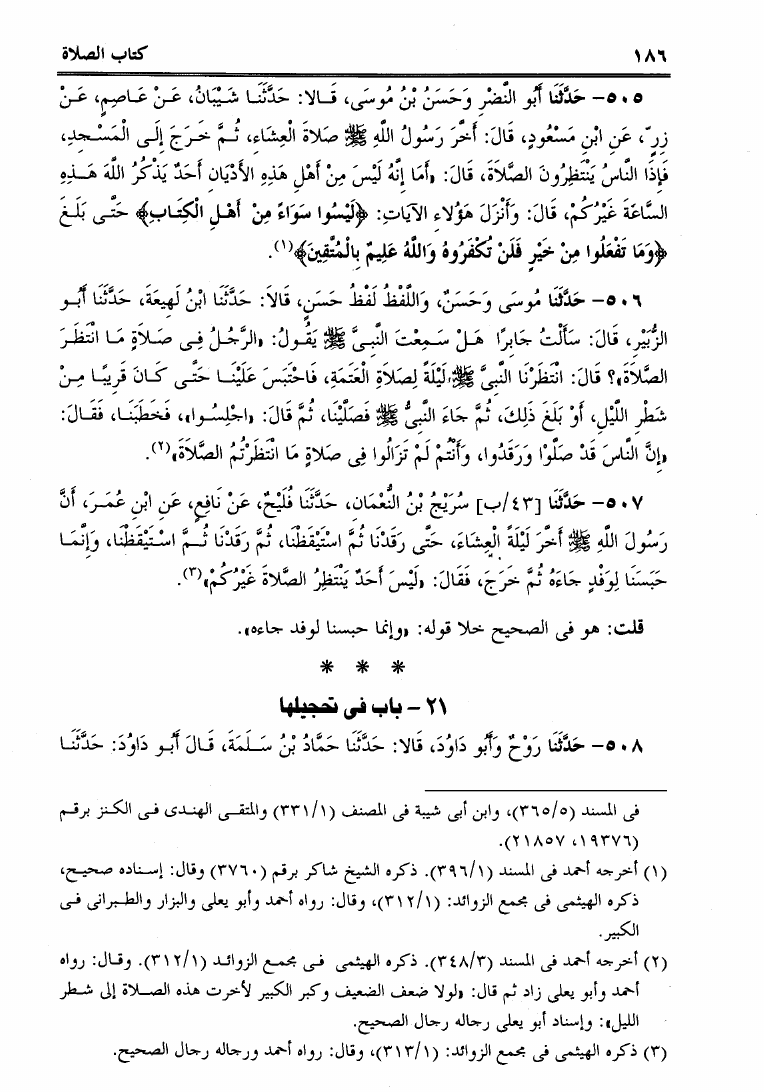 ١٨٦ كتاب الصلاة
٥٠٥- حَدَّثَنَا أَبُو النَّضْرِ وَحَسَنُ بْنُ مُوسَى، قَالا: حَدَّثَنَا شَيْبَانُ، عَنْ عَاصِمٍ، عَنْ
زِرٍّ، عَنِ ابْنِ مَسْعُودٍ، قَالَ: أَخَّرَ رَسُولُ اللَّهِ ﷺ صَلاةَ الْعِشَاءِ، ثُمَّ خَرَجَ إِلَى الْمَسْجِدِ،
فَإِذَا النَّاسُ يَنْتَظِرُونَ الصَّلاةَ، قَالَ: «أَمَا إِنَّهُ لَيْسَ مِنْ أَهْلِ هَذِهِ الأَدْيَانِ أَحَدٌ يَذْكُرُ اللَّهَ هَذِهِ
السَّاعَةَ غَيْرُكُمْ، قَالَ: وَأَنْزَلَ هَؤُلاءِ الآيَاتِ: ﴿لَيْسُوا سَوَاءً مِنْ أَهْلِ الْكِتَابِ﴾ حَتَّى بَلَغَ
﴿وَمَا تَفْعَلُوا مِنْ خَيْرٍ فَلَنْ تُكْفَرُوهُ وَاللَّهُ عَلِيمٌ بِالْمُتَّقِينَ﴾(١).
٥٠٦- حَدَّثَنَا مُوسَى وَحَسَنٌ، وَاللَّفْظُ لَفْظُ حَسَنٍ، قَالاَ: حَدَّثَنَا ابْنُ لَهِيعَةَ، حَدَّثَنَا أَبُو
الزُّبَيْرِ، قَالَ: سَأَلْتُ جَابِرًا هَلْ سَمِعْتَ النَّبِىَّ ﷺ يَقُولُ: «الرَّجُلُ فِى صَلاةٍ مَا انْتَظَرَ
الصَّلاةَ»؟ قَالَ: انْتَظَرْنَا النَّبِىَّ ﷺ لَيْلَةً لِصَلاةِ الْعَتَمَةِ، فَاحْتَبَسَ عَلَيْنَا حَتَّى كَانَ قَرِيبًا مِنْ
شَطْرِ اللَّيْلِ، أَوْ بَلَغَ ذَلِكَ، ثُمَّ جَاءَ النَّبِىُّ ﷺ فَصَلَّيْنَا، ثُمَّ قَالَ: «اجْلِسُوا»، فَخَطَبَنَا، فَقَالَ:
«إِنَّ النَّاسَ قَدْ صَلَّوْا وَرَقَدُوا، وَأَنْتُمْ لَمْ تَزَالُوا فِى صَلاةٍ مَا انْتَظَرْتُمُ الصَّلاةَ»(٢).
٥٠٧- حَدَّثَنَا [٤٣/ب] سُرَيْجُ بْنُ النُّعْمَانِ، حَدَّثَنَا فُلَيْحٌ، عَنْ نَافِعٍ، عَنِ ابْنِ عُمَرَ، أَنَّ
رَسُولَ اللَّهِ ﷺ أَخَّرَ لَيْلَةً الْعِشَاءَ، حَتَّى رَقَدْنَا ثُمَّ اسْتَيْقَظْنَا، ثُمَّ رَقَدْنَا ثُمَّ اسْتَيْقَظْنَا، وَإِنَّمَا
حَبَسَنَا لِوَفْدٍ جَاءَهُ ثُمَّ خَرَجَ، فَقَالَ: «لَيْسَ أَحَدٌ يَنْتَظِرُ الصَّلاةَ غَيْرُكُمْ»(٣).
قلت: هو فى الصحيح خلا قوله: «وإنما حبسنا لوفد جاءه».
* * *
٢١ - باب فى تعجيلها
٥٠٨- حَدَّثَنَا رَوْحٌ وَأَبُو دَاوُدَ، قَالا: حَدَّثَنَا حَمَّادُ بْنُ سَلَمَةَ، قَالَ أَبُو دَاوُدَ: حَدَّثَنَا
فى المسند (٣٦٥/٥)، وابن أبى شيبة فى المصنف (٣٣١/١) والمتقى الهندى فى الكنز برقم
(١٩٣٧٦، ٢١٨٥٧).
(١) أخرجه أحمد فى المسند (٣٩٦/١). ذكره الشيخ شاكر برقم (٣٧٦٠) وقال: إسناده صحيح،
ذكره الهيثمى فى مجمع الزوائد: (٣١٢/١)، وقال: رواه أحمد وأبو يعلى والبزار والطبرانى فى
الكبير.
(٢) أخرجه أحمد فى المسند (٣٤٨/٣). ذكره الهيثمى فى مجمع الزوائد (٣١٢/١). وقال: رواه
أحمد وأبو يعلى زاد ثم قال: «لولا ضعف الضعيف وكبر الكبير لأخرت هذه الصلاة إلى شطر
الليل»: وإسناد أبو يعلى رجاله رجال الصحيح.
(٣) ذكره الهيثمى فى مجمع الزوائد: (٣١٣/١)، وقال: رواه أحمد ورجاله رجال الصحيح.